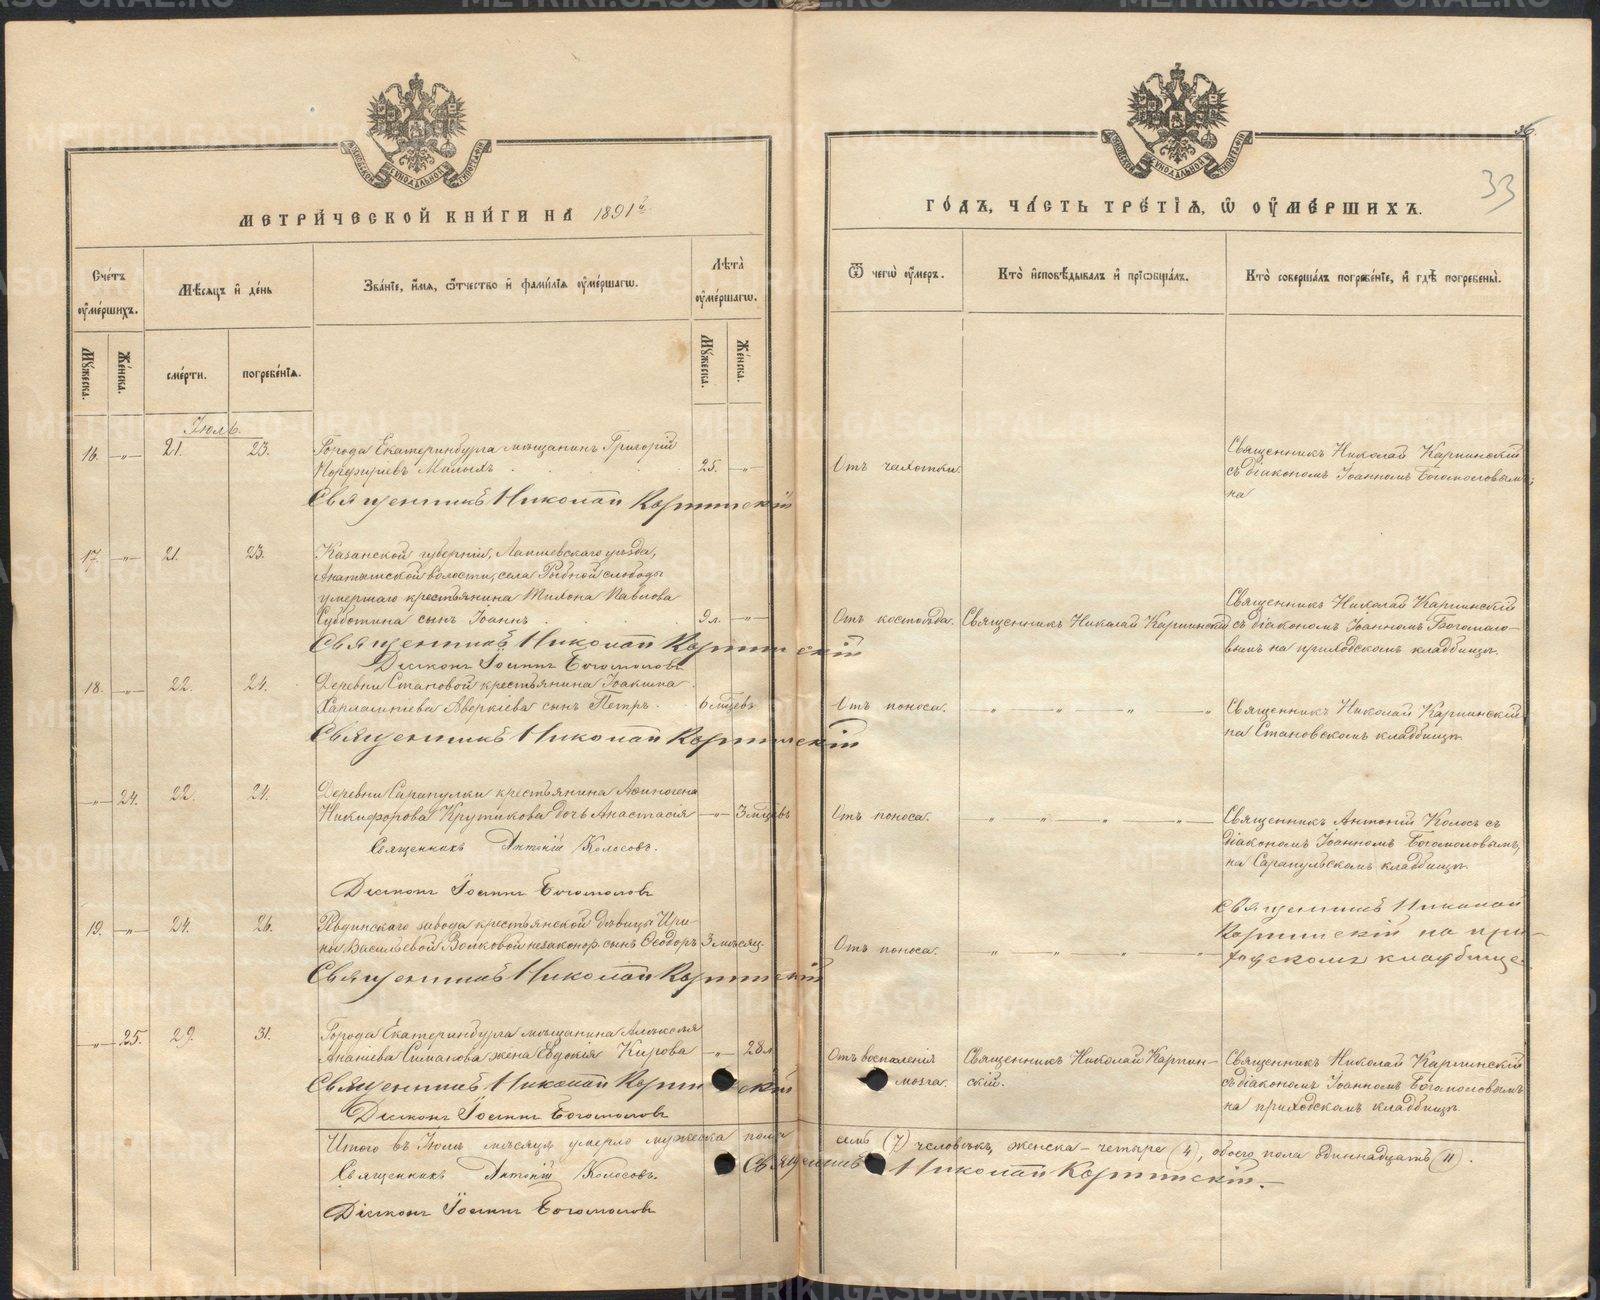 МЕТРИ́ЧЕСКОЙ КНИ́ГИ НА 1891 г.
Сче́тъ ѹ҆ме́ршихъ.
Мѣ́сяцъ и҆ де́нь
Зва́нїе, и҆́мя, ѻ҆́тчество и҆ фами́лїя ѹ҆ме́ршагѡ.
Лѣ́та ѹ҆ме́ршагѡ.
Мꙋ́жеска.
Же́нска.
сме́рти.
погребе́нїѧ.
Мꙋ́жеска.
Же́нска.
Іюль.
16. —„— 21. 23. Города Екатеринбурга мѣщанинъ Григорій
Порфирьевъ Малыхъ 25. —„—
Священникъ Николай Карпинскій
17. —„— 21. 23. Казанской губерніи, Лаишевскаго уѣзда,
волости, села Рыбной слободы
умершаго крестьянина Тихона Павлова
Субботина сынъ Іоаннъ 9 л. —„—
Священникъ Николай Карпинскій
Діаконъ Іоаннъ Богомоловъ
18. —„— 22. 24. Деревни Становой крестьянина Іоакима
Харлампіева Аверкіева сынъ Петръ. 6 мцевъ
Священникъ Николай Карпинскій
—„— 24. 22. 24. Деревни Сарапулки крестьянина Аѳиногена
Никифорова Крутикова дочь Анастасія —„— 3 мцевъ
Священникъ Антоній Колосовъ.
Діаконъ Іоаннъ Богомоловъ
19. —„— 24. 26. Ревдинскаго завода крестьянской дѣвицы Ири-
ны Васильевой Волковой незаконор. сынъ Ѳеодоръ 3 мѣсяц.
Священникъ Николай Карпинскій
—„— 25. 29. 31. Города Екатеринбурга мѣщанина Алексѣя
Ананіева Симанова жена Евдокія Кирова —„— 28 л.
Священникъ Николай Карпинскій
Діаконъ Іоаннъ Богомоловъ
Итого въ Іюлѣ мѣсяцѣ умерло мужеска пола
Священникъ Антоній Колосовъ.
Діаконъ Іоаннъ Богомоловъ
36.
33
ГО́ДЪ, ЧА́СТЬ ТРЕ́ТЇѦ, Ѡ҆ ОУ҆МЕ́РШИХЪ.
Ѿ чегѡ̀ ѹ҆́меръ.
Кто̀ и҆сповѣ́дывалъ и҆ прїѡбща́лъ.
Кто̀ соверша́лъ погребе́нїе, и҆ гдѣ̀ погребены̀.
Отъ чахотки.
Священникъ Николай Карпинскій
съ діакономъ Іоанномъ Богомоловымъ,
на
Отъ костоѣда. Священникъ Николай Карпинскій
Священникъ Николай Карпинскій
съ діакономъ Іоанномъ Богомоло-
вымъ на приходскомъ кладбищѣ.
Отъ поноса. „ — „ — „ — „
Священникъ Николай Карпинскій
на Становскомъ кладбищѣ.
Отъ поноса. „ — „ — „ — „ —
Священникъ Антоній Колосъ съ
діакономъ Іоанномъ Богомоловымъ,
на Сарапульскомъ кладбищѣ.
Отъ поноса. „ — „ — „ — „ —
Священникъ Николай
Карпинскій на при-
ходскомъ кладбище.
Отъ воспаленія
мозга.
Священникъ Николай Карпин-
скій.
Священникъ Николай Карпинскій
съ діакономъ Іоанномъ Богомоловымъ
на приходскомъ кладбищѣ.
семь (7) человѣкъ, женска – четыре (4), обоего пола одиннадцать (11).
Священникъ Николай Карпинскій.
METRIKI.GASO-URAL.RU